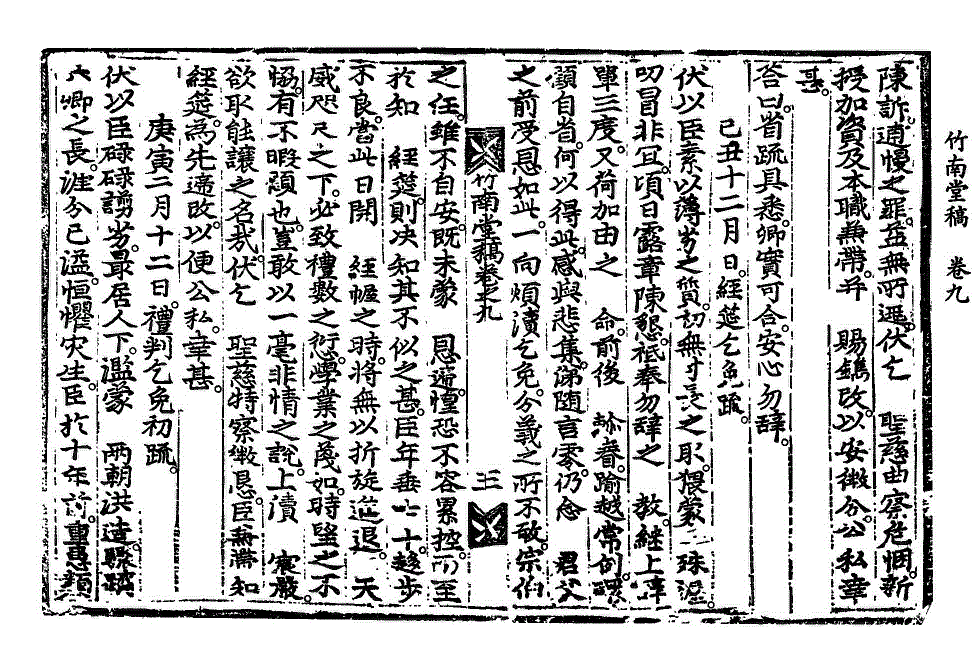 竹南堂稿 卷九
陳訴逋慢之罪益無所逃伏乞 聖慈曲察危悃新
授加資及本職兼帶幷 賜鐫改以安微分公私幸
甚
答曰省疏具悉卿實可合安心勿辭
己丑十二月日經筵乞免疏
伏以臣素以薄劣之質切無寸長之取猥蒙 殊渥
叨冒非宜頃日露章陳懇祗奉勿辭之 敎繼上辭
單三度又荷加由之 命前後 眷踰越常例
顧自省何以得此感與悲集涕隨言零仍念 君父
之前受恩如此一向煩瀆乞免分義之所不敢宗伯
竹南堂稿卷之九 三
之任雖不自安旣未蒙 恩遞惶恐不容累控而至
於知 經筵則決知其不似之甚臣年垂七十趍步
不良當此日開 經幄之時將無以折旋進退 天
威咫尺之下必致禮數之愆學業之蔑如時望之不
恊有不暇顧也豈敢以一毫非情之說上瀆 宸嚴
欲取能讓之名哉伏乞 聖慈特察微懇臣兼帶知
經筵爲先遞改以便公私幸甚
庚寅二月十二日禮判乞免初疏
伏以臣碌碌譾劣最居人下濫蒙 兩朝洪造驟躋
六卿之長涯分已溢恒懼灾生臣於十年前重患類